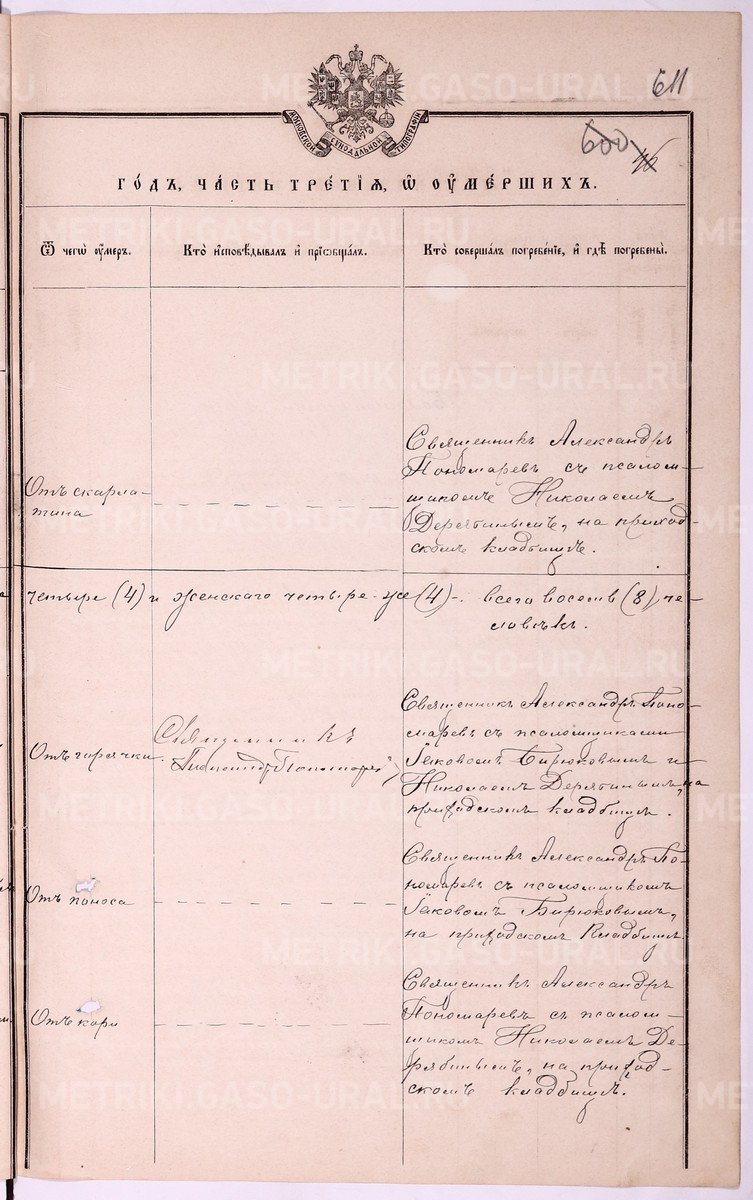 611
600
46
МОСКОВСКОЙ СѴНОДАЛЬНОЙ ТИПОГРАФІИ
ГО́ДЪ, ЧА́СТЬ ТРЕ́ТІѦ, Ѡ҆ ОУ҆МЕ́РШИХЪ.
Ѿ чегѡ̀ оу҆́меръ.
Кто̀ и҆сповѣ́дывалъ и҆ прїѡбща́лъ.
Кто̀ соверша́лъ погребе́нїе, и҆ гдѣ̀ погребены̀.
Отъ скарла-
тина
Священникъ Александръ
Пономаревъ съ псалом-
щикомъ Николаемъ
Дерябинымъ, на приход-
скомъ кладбищѣ.
четыре (4) и женскаго четыре-же (4) -. всего восемь (8) че-
ловѣкъ.
Отъ горячки.
Священникъ
Александръ Пономаревъ
Священникъ Александръ Поно-
маревъ съ псаломщиками
Іаковомъ Бирюковымъ и
Николаемъ Дерябинымъ, на
приходскомъ кладбищѣ.
Отъ поноса
Священникъ Александръ По-
номаревъ съ псаломщикомъ
Іаковомъ Бирюковымъ,
на приходскомъ кладбищѣ.
Отъ кори
Священникъ Александръ
Пономаревъ съ псалом-
щикомъ Николаемъ Де-
рябинымъ, на приход-
скомъ кладбищѣ.
METRIKI.GASO-URAL.RU